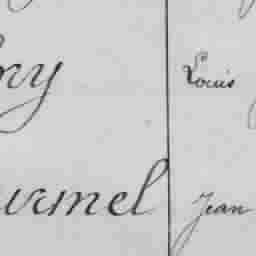 ny Louis
urmel Jean